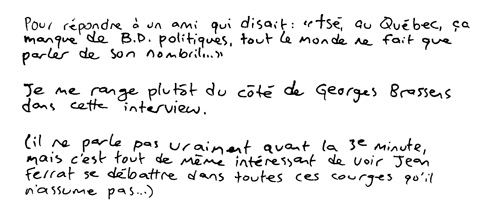 Pour répondre à un ami qui disait : "tsé, au Québec, ça
manque de B.D. politiques, tout le monde ne fait que
parler de son nombril..."
Je me range plutôt du côté de Georges Brassens
dans cette interview.
(il ne parle pas vraiment avant la 3e minute,
mais c'est tout de même intéressant de voir Jean
Ferrat se débattre dans toutes ces courges qu'il
n'assume pas...)